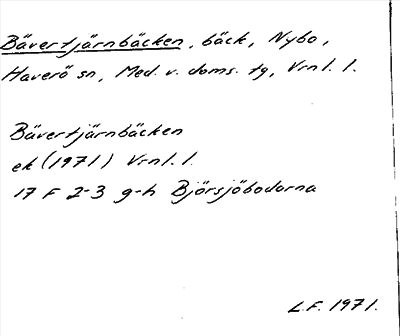 Bävertjärnbäcken, bäck, Nybo,
Haverö sn, Med. v. doms. tg, Vrnl. l.
Bävertjärnbäcken
ek (1971) Vrnl. l.
17 F 2-3 g-h Björsjöbodarna
L.F. 1971.